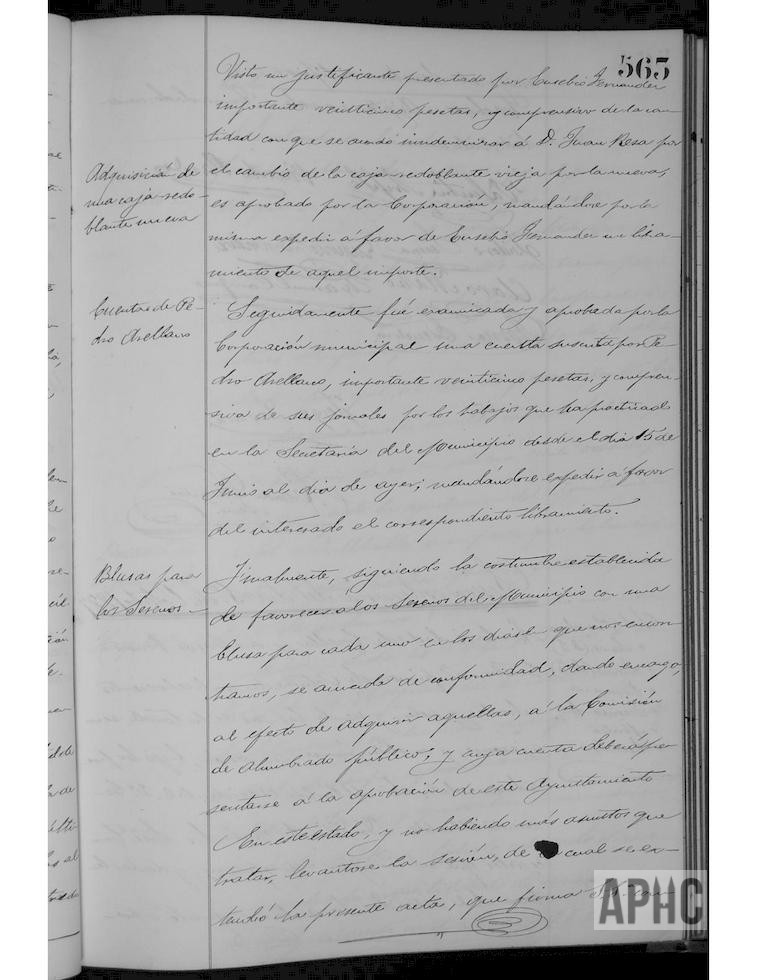 565
Visto un justificante presentado por Eusebio Fernandez
importante veinticinco pesetas, y comprensivo de la can-
tidad con que se acordó indemnizar á D. Juan Resa por
el cambio de la caja redoblante vieja por la nueva,
es aprobado por la Corporación, mandándose por la
misma expedir á favor de Eusebio Fernandez un libra-
miento de aquel importe.
Adquisición de
una caja redo-
blante nueva
Seguidamente fué examinada y aprobada por la
Corporación municipal una cuenta suscrita por Pe-
dro Arellano, importante veinticinco pesetas, y compren-
siva de sus jornales por los trabajos que ha practicado
en la Secretaría del Municipio desde el dia 15 de
Junio al dia de ayer; mandándose expedir á favor
del interesado el correspondiente libramiento.
Cuentas de Pe-
dro Arellano
Finalmente, siguiendo la costumbre establecida
de favorecer a los Serenos del Municipio con una
blusa para cada uno en los dias en que nos encon-
tramos, se acuerda de conformidad, dando encargo,
al efecto de adquirir aquellas, á la Comisión
de alumbrado público, y cuya cuenta deberá pre
sentarse á la aprobación de este Ayuntamiento
Blusas para
los Serenos
En este estado, y no habiendo más asuntos que
tratar, levantose la sesión, de cual se ex-
tendió la presente acta, que firma S.S. con
APHC